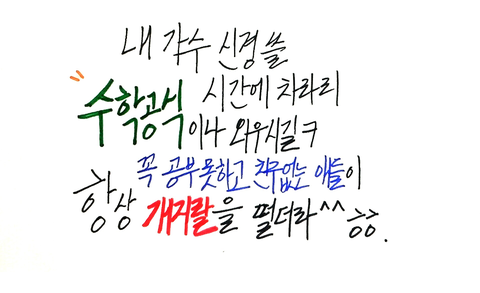 내 가수 신경쓸
시간에 차라리
수학공식이나 외우시길ㅋ
꼭 공부못하고 친구없는 애들이
항상 개지랄을 떨더라^^ ㅎㅎ.